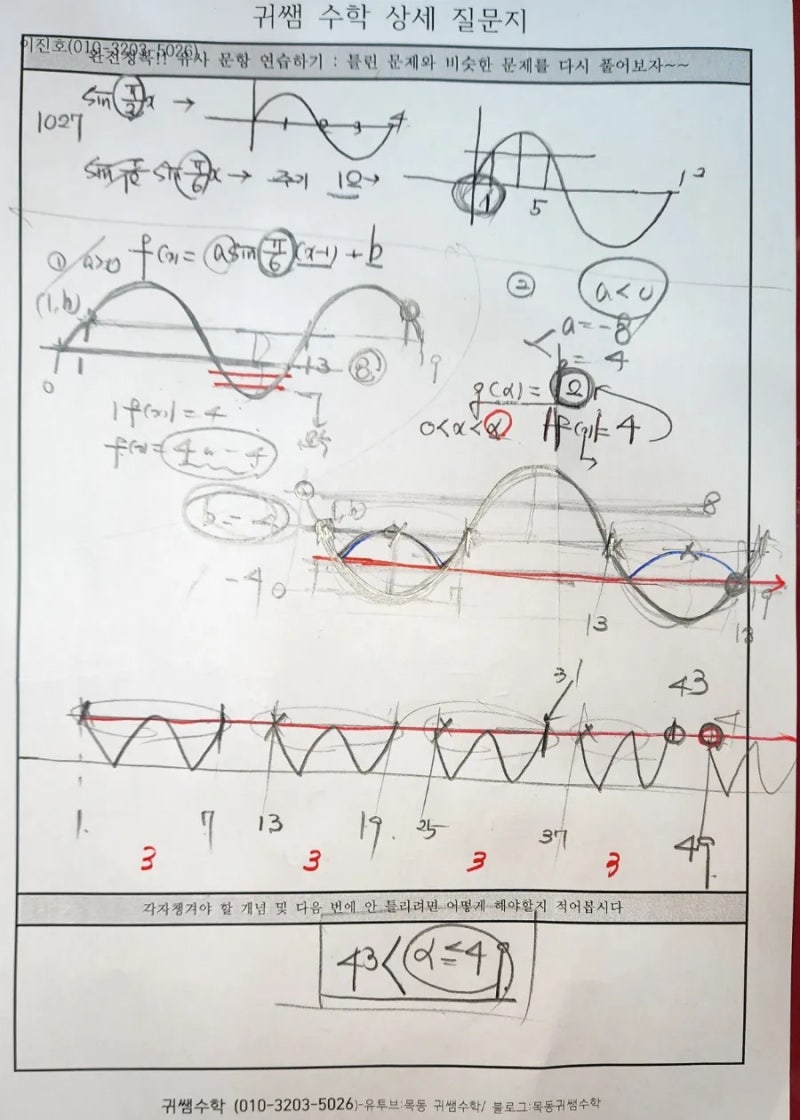 귀쌤 수학 상세 질문지
이진호(010-3203-5026)
완전정복!! 유사 문항 연습하기 : 틀린 문제와 비슷한 문제를 다시 풀어보자~~
sin(π/2)x → 1 2 3 4
1027
sin π/6 x → 주기 12 → 1 5 12
① a>0 f(x)= a sin π/6 (x-1) + b
② a<0
(1, b)
a=-8
b = 4
0 1 13 9
g(α)= 2
|f(x)|=4
0<x<α |f(x)|= 4
f(x)= 4 -4
(1, b) 8
-4 0 7 13 19
31 43
1 7 13 19 25 37 49
3 3 3 3
각자챙겨야 할 개념 및 다음 번에 안 틀리려면 어떻게 해야할지 적어봅시다
43< α ≤49
귀쌤수학 (010-3203-5026)-유투브:목동 귀쌤수학/ 블로그:목동귀쌤수학